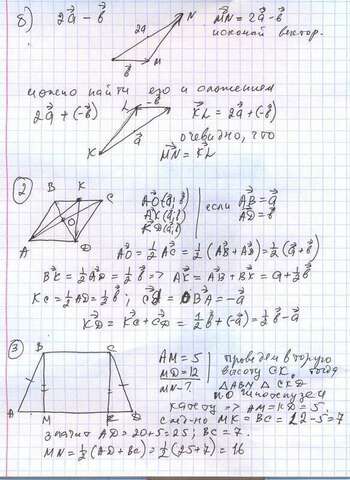 б) 2a⃗ - b⃗
2a⃗
N
b⃗
M
MN⃗ = 2a⃗ - b⃗
искомый вектор.
можно найти его и сложением
2a⃗ + (-b⃗)
L
-b⃗
a⃗
K
KL⃗ = 2a⃗ + (-b⃗)
очевидно, что
MN⃗ = KL⃗
2
B K C
O
A D
AO⃗(a⃗;b⃗)
AK⃗(a⃗;b⃗)
KD⃗(a⃗;b⃗)
если AB⃗ = a⃗
AD⃗ = b⃗
AO⃗ = 1/2 AC⃗ = 1/2 (AB⃗ + AD⃗) = 1/2 (a⃗ + b⃗)
BK⃗ = 1/2 AD⃗ = 1/2 b⃗ => AK⃗ = AB⃗ + BK⃗ = a + 1/2 b⃗
KC = 1/2 AD = 1/2 b⃗; CD⃗ = BA⃗ = -a⃗
KD⃗ = KC⃗ + CD⃗ = 1/2 b⃗ + (-a⃗) = 1/2 b⃗ - a⃗
3
B C
A M K D
AM = 5
MD = 12
MN - ?
проведем вторую
высоту CK, тогда
△ABM △CKD
по гипотенузе
катету => AM = KD = 5,
MK = BC = 12 - 5 = 7
значит AD = 20 + 5 = 25; BC = 7.
MN = 1/2 (AD + BC) = 1/2 (25 + 7) = 16